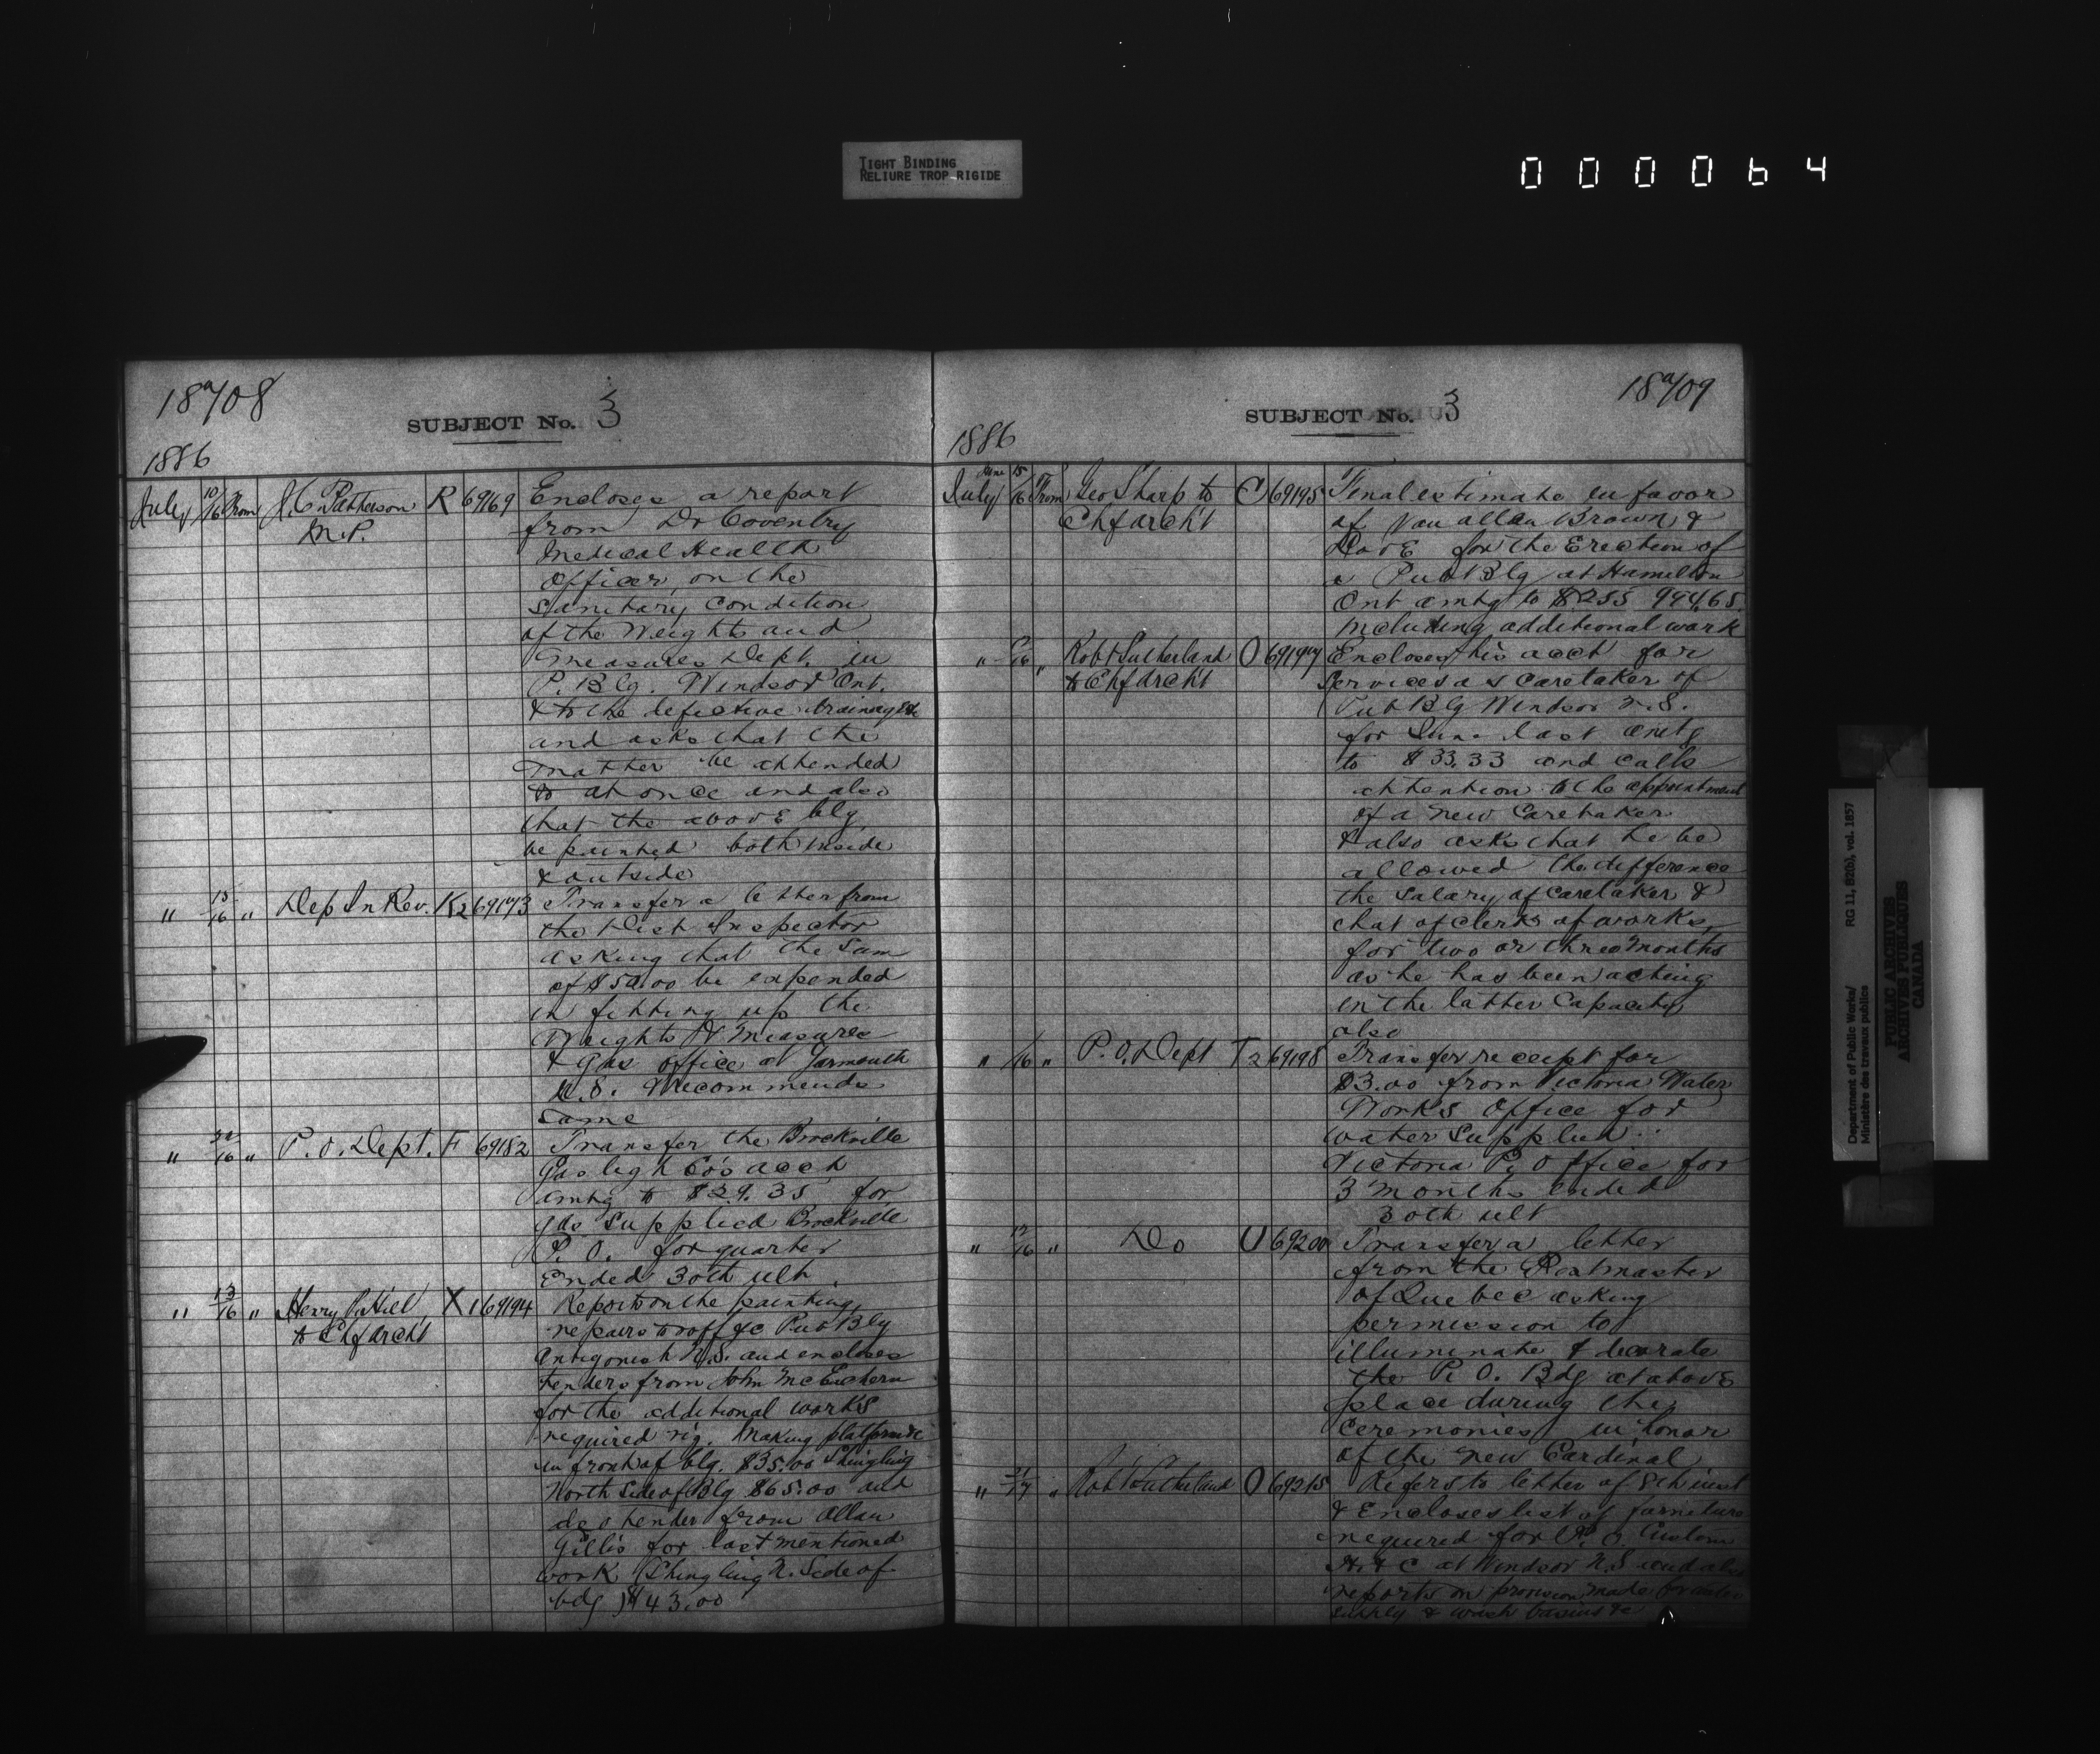 TIGHT BINDING
RELIURE TROP RIGIDE
000064
18a/08
SUBJECT No. 3
1886
July 10/16 From J. C. Patterson M.P. R 69169 Encloses a report
from Dr Coventry
Medical Health
Officer, on the
Sanitary Condition
of the Weights and
Measures Dept. in
P. Blg. Windsor Ont.
& to the defective drainage &c
and asks that the
matter be attended
to at once and also
that the above blg
be painted both inside
& outside
" 15/16 " Dep In Rev. K2 69173 Transfer a letter from
the Dist Inspector
asking that the Sum
of $50.00 be expended
in fitting up the
Weights & Measures
& Gas office at Yarmouth
N.S. & recommends
Same
" /16 " P. O. Dept. F 69182 Transfer the Brockville
Gas light Co's acct
amtg to $29.35 for
gas Supplied Brockville
P. O. for quarter
Ended 30th ult.
" 13/16 " Henry P. Hill to Chf Archt X1 69194 Reports on the painting,
repairs to roff &c Pub Blg
Antigonish N.S. and encloses
tenders from John McEachern
for the additional works
required viz. Making platform &c
in front of blg. $35.00 Shingling
North Side of Blg $65.00 and
do tender from Allan
Gillis for last mentioned
work (Shingling N. Side of
bdg) $43.00
18a/09
SUBJECT No. 3
1886
July June 15/16 From Geo Sharp to Chf Archt C 69195 Final estimate in favor
of Van Allan Brown &
Dove for the Erection of
a Pub Blg at Hamilton
Ont amtg to $255 994.65
Including additional work
" /16 " Robt Sutherland to Chf Archt O 69197 Encloses his acct for
Services as Caretaker of
Pub Blg Windsor N.S.
for June last amtg
to $33.33 and calls
attention to the appointment
of a new Caretaker
& also asks that he be
allowed the difference
the Salary of Caretaker &
that of clerk of works,
for two or three months
as he has been acting
in the latter Capacity
also
" /16 " P. O. Dept T2 69198 Transfer receipt for
$3.00 from Victoria Water
Works Office for
water Supplied
Victoria P. Office for
3 months ended
30th ult
" 12/16 " Do U 69200 Transfer a letter
from the Postmaster
of Quebec asking
permission to
illuminate & decorate
the P. O. Bdg at above
place during the
Ceremonies in honor
of the New Cardinal
" /17 " Robt Sutherland O 69215 Refers to letter of 8th inst
& Encloses list of furniture
required for P. O. Custom
H. &c at Windsor N.S and also
reports on provision made for water
supply & wash basins &c
Department of Public Works/ RG 11, B2(b), vol. 1857
Ministère des travaux publics
PUBLIC ARCHIVES
ARCHIVES PUBLIQUES
CANADA